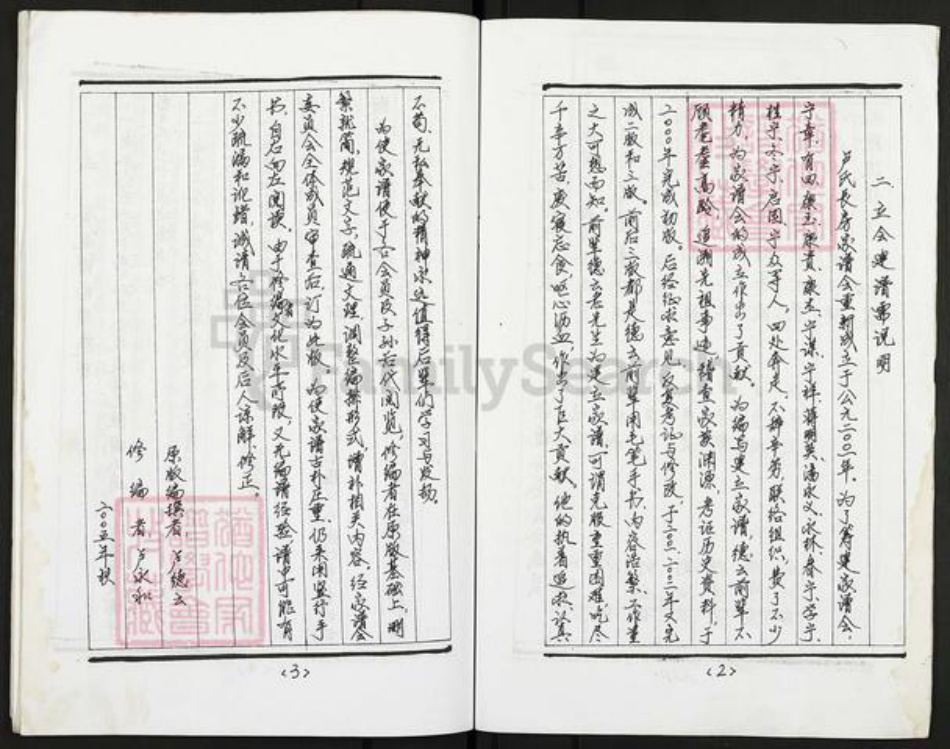 二、立会建谱需说明
卢氏长房家谱会重新成立于公元二〇〇一年。为了筹建家谱会,
宇章、有四、康玉、康贵、康杰、宇谋、宇祥、蒋明英、汤永义、永林、春宇、学宇、
桂宇、冬宇、启国、宇友等人,四处奔走,不辞辛劳,联络组织,费了不少
精力,为家谱会的成立作出了贡献。为编写建立家谱,德云前辈不
顾耄耋高龄,追溯先祖事迹,精查家族渊源,考证历史资料,于
二〇〇〇年完成初版。后经征求意见,反复考证与修改,于二〇〇一、二〇〇二年又完
成二版和三版。前后三版都是德云前辈用毛笔手书,内容浩繁,工作量
之大可想而知。前辈德云老先生为建立家谱,可谓克服重重困难,吃尽
千辛万苦,废寝忘食,呕心沥血,作出了巨大贡献。他的执着追求、认真
不苟、无私奉献的精神永远值得后辈们学习与发扬。
为使家谱便于各会员及子孙后代阅览,修编者在原版基础上,删
繁就简,规范文字,疏通文理,调整编排形式,增补相关内容,经家谱会
委员会全体成员审查后,订为此版。为使家谱古朴庄重,仍采用竖行手
书,自右向左阅读。由于修编者文化水平有限,又无编谱经验,谱中可能有
不少疏漏和讹错,诚请各位会员及后人谅解、修正。
原版编撰者 卢德云
修编者 卢永和
二〇〇五年秋
<3>
<2>
FamilySearch